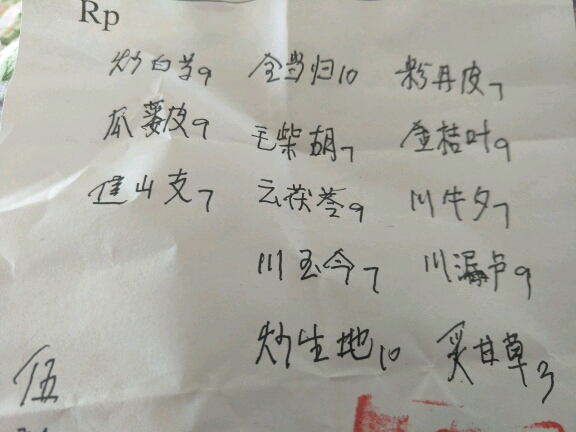 Rp
炒白芍9 全当归10 粉丹皮7
瓜蒌皮9 毛柴胡7 金桔叶9
焦山支7 云茯苓9 川牛夕7
川玉今7 川漏芦9
炒生地10 炙甘草3
伍